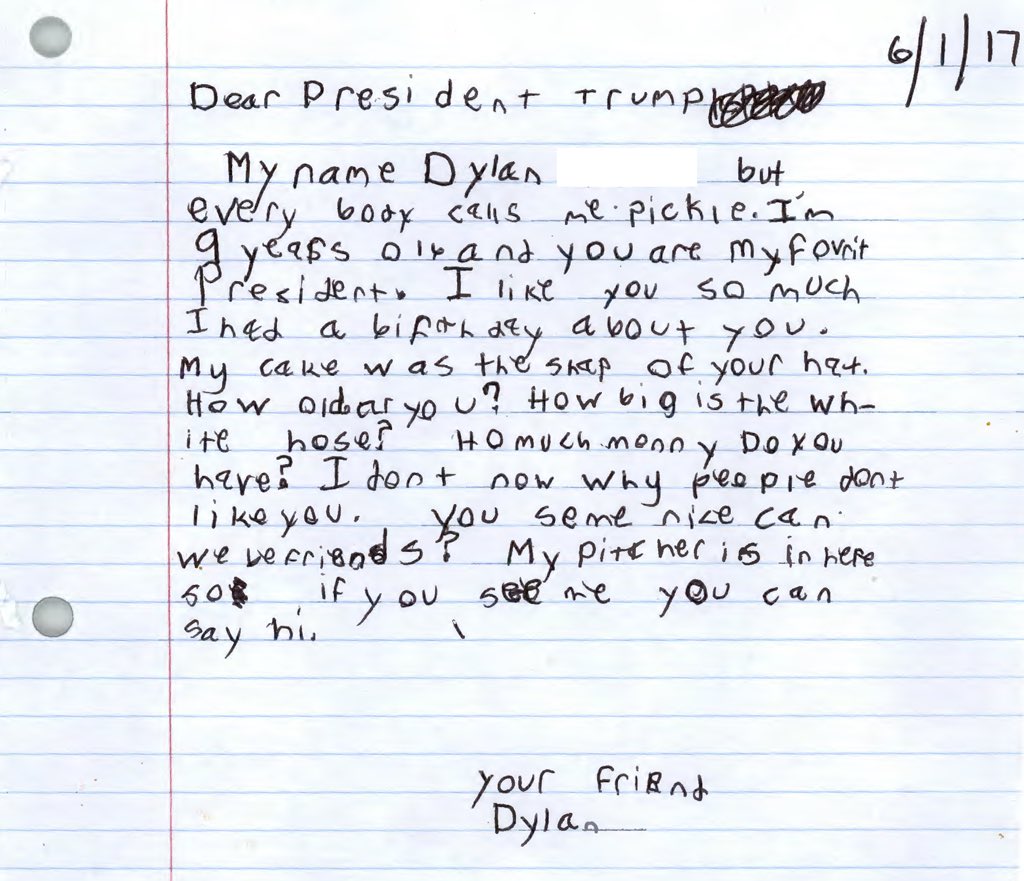 6/1/17
Dear President Trump
My name Dylan but
every body calls me pickle. I'm
9 years old and you are my fovrit
President. I like you so much
I had a birthday about you.
My cake was the shap of your hat.
How old ar you? How big is the wh-
ite hose? Ho much monny Do you
have? I dont now why people dont
like you. You seme nice can
we be friends? My pitcher is in here
so if you see me you can
say hi.
your friend
Dylan